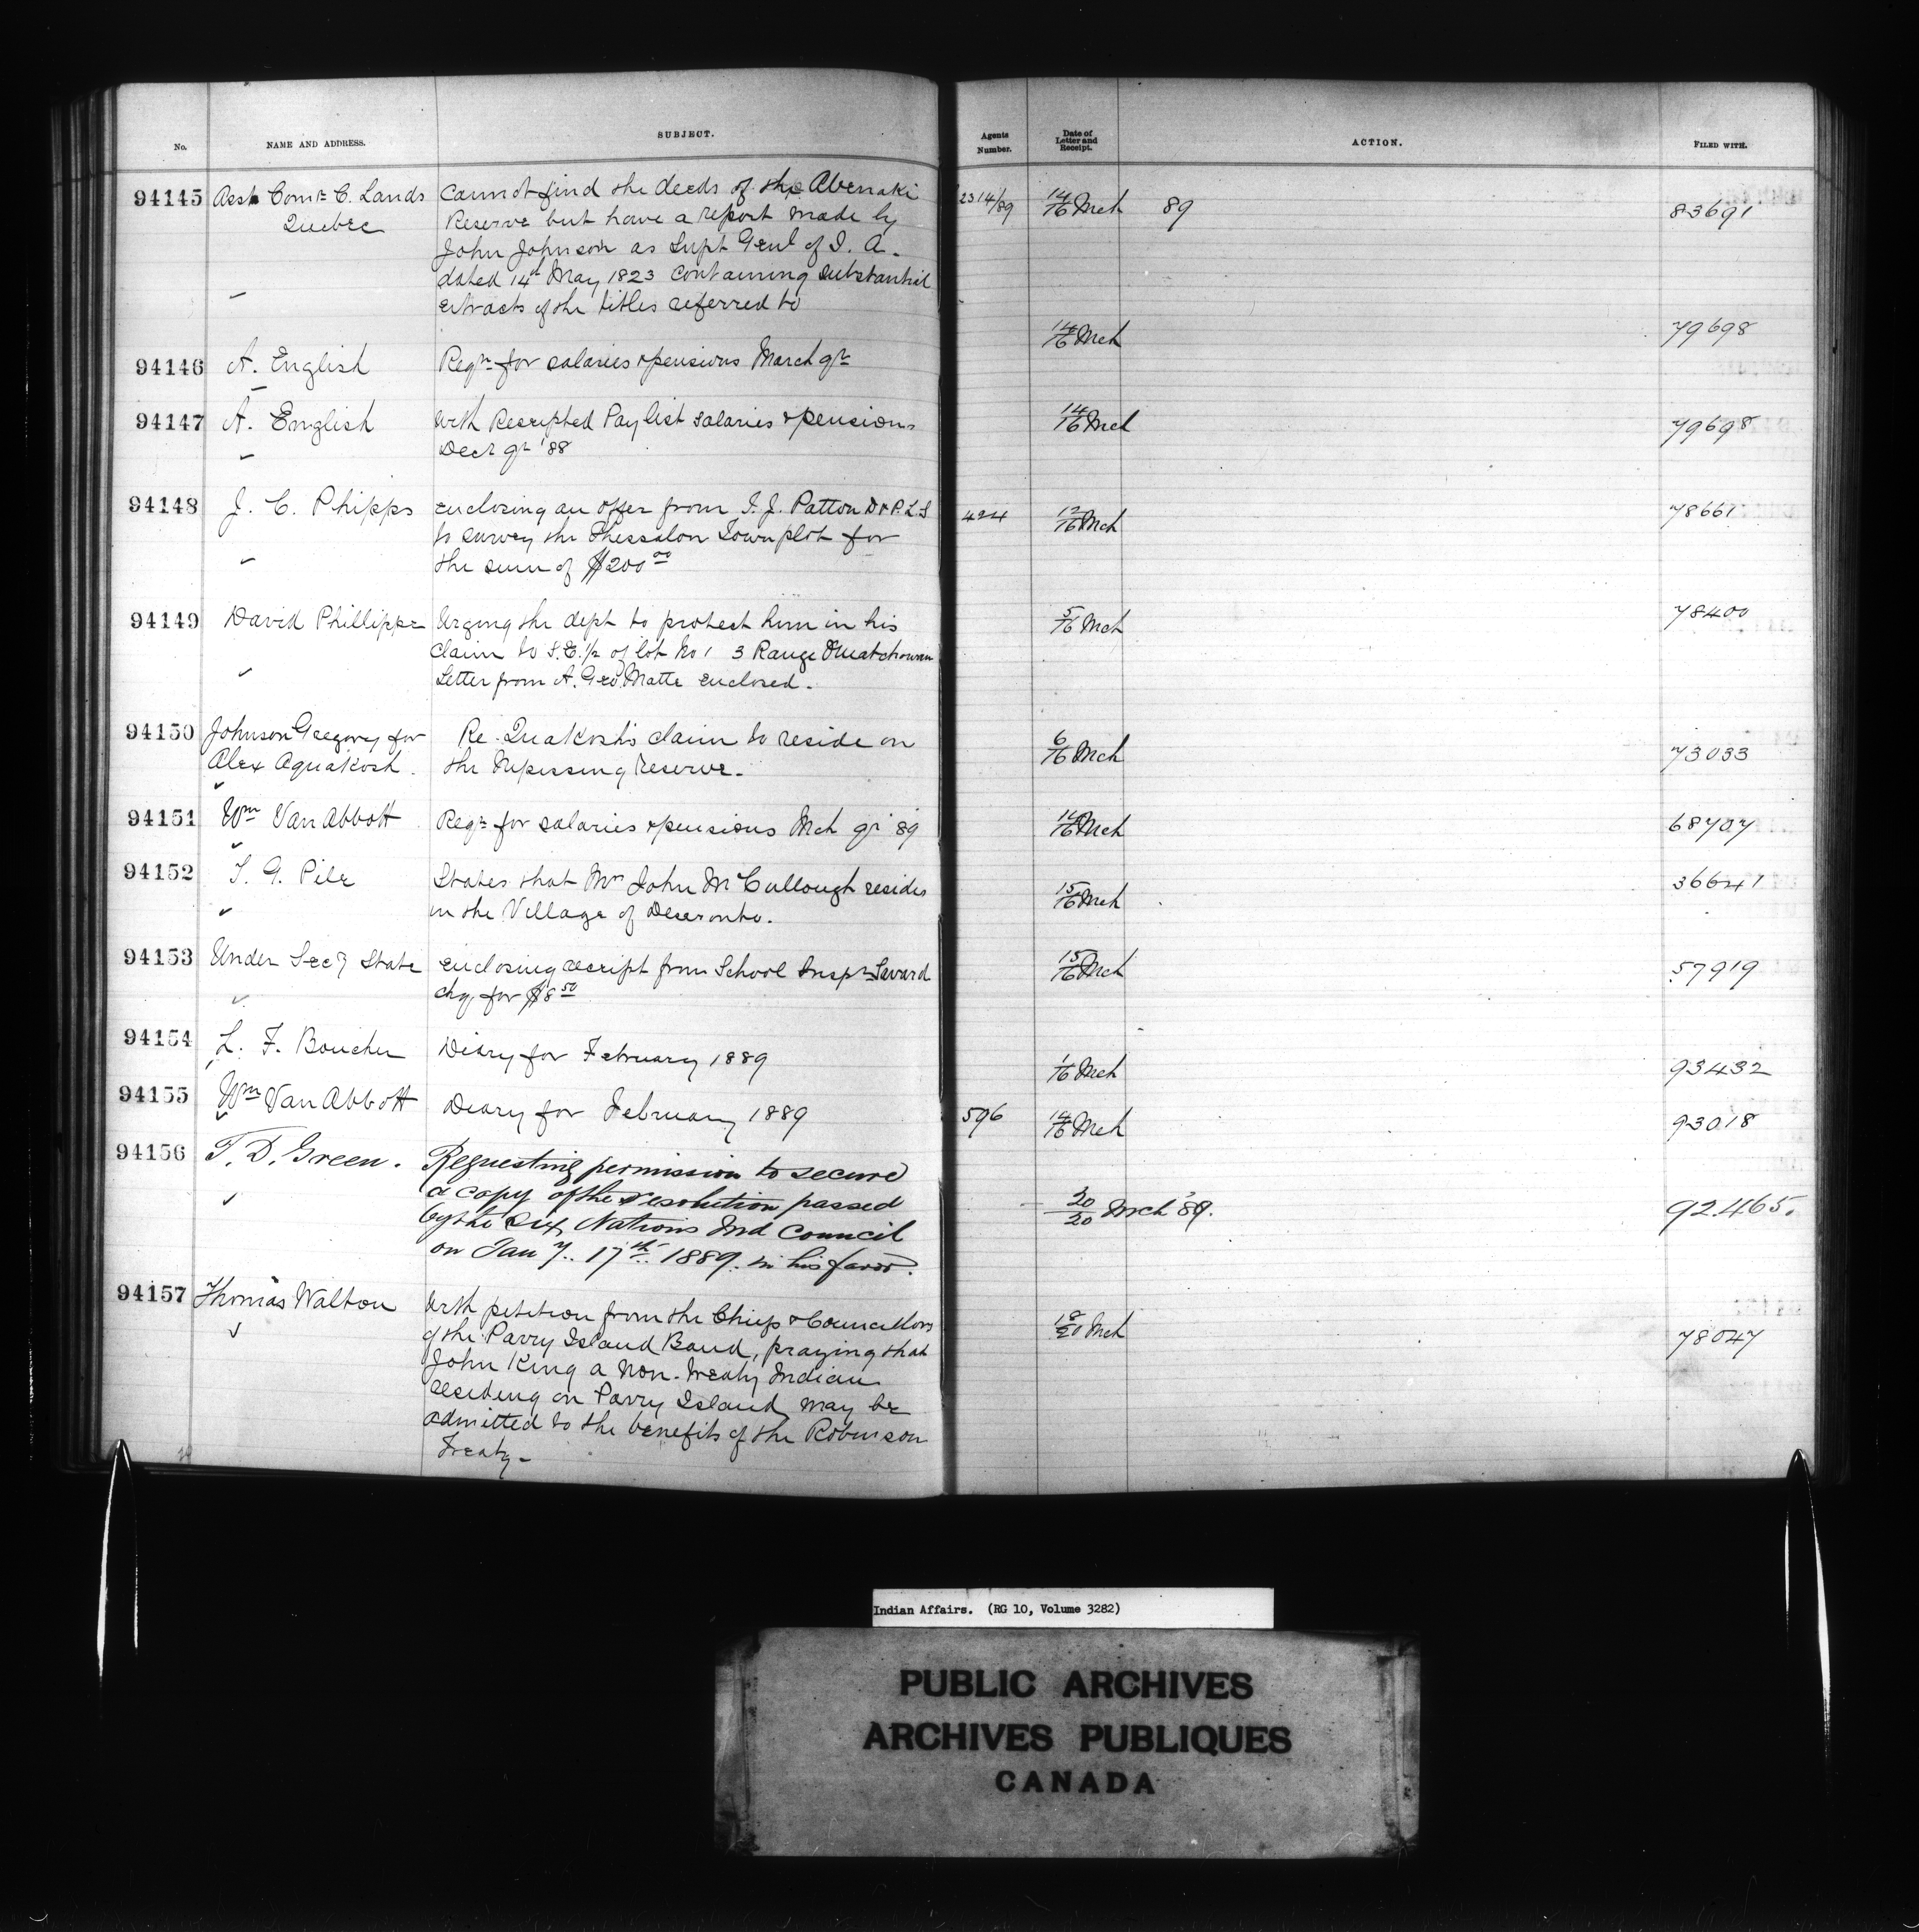 No. NAME AND ADDRESS. SUBJECT. Agents Number. Date of Letter and Receipt. ACTION. FILED WITH.
94145 Asst Comr C. Lands Cannot find the deeds of the Abenaki 2314/89 14/16 Mch 89 83691
Quebec Reserve but have a report made by
John Johnson as Supt Genl of I. A.
dated 14th May 1823 containing substantial
extracts of the titles referred to
94146 A. English Reqn for salaries & pensions March qr 14/16 Mch 79698
94147 A. English With Receipted Pay list salaries & pensions 14/16 Mch 79698
Decr qr '88
94148 J. C. Phipps enclosing an offer from T. J. Patton D & P. L. S 424 12/16 Mch 78661
to survey the Thessalon Town plot for
the sum of $200 00
94149 David Phillipps Urging the dept to protect him in his 5/16 Mch 78400
claim to S.E. 1/2 of lot No 1 3 Range Ouiatchouan
Letter from A. Geo. Matte enclosed.
94150 Johnson Gregory for Re. Quakosh's claim to reside on 6/16 Mch 73033
Alex Aquakosh. the Nipissing Reserve.
94151 Wm Van Abbott Reqn for salaries & pensions Mch qr '89 14/16 Mch 68707
94152 T. G. Pile States that Mrs John McCullough resides 15/16 Mch 36641
in the Village of Deseronto.
94153 Under Secy State enclosing receipt from School Inspr Savard 15/16 Mch 57919
chq. for $8 50
94154 L. F. Boucher Diary for February 1889 1/16 Mch 93432
94155 Wm Van Abbott Diary for February 1889 596 14/16 Mch 93018
94156 T. D. Green. Requesting permission to secure
a copy of the resolution passed 20/20 Mch '89. 92.465.
by the Six Nations Ind Council
on Jan y. 17th 1889. in his favor.
94157 Thomas Walton With petition from the Chiefs & Councillors 18/20 Mch 78047
of the Parry Island Band, praying that
John King a Non-treaty Indian
residing on Parry Island may be
admitted to the benefits of the Robinson
Treaty-
Indian Affairs. (RG 10, Volume 3282)
PUBLIC ARCHIVES
ARCHIVES PUBLIQUES
CANADA